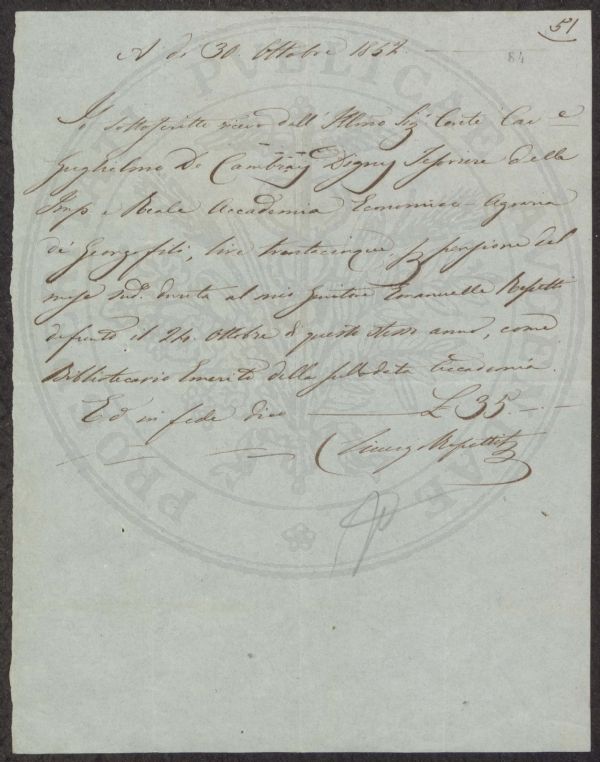 51
A dì 30. Ottobre 1852.
84
Io sottoscritto ricevo dall' Illmo Sigr Conte Cave
Guglielmo De Cambray Digny Tesoriere della
Imp. e Reale Accademia Economico-Agraria
de' Georgofili, lire trentacinque per pensione del
mese sudo. dovuta al mio Genitore Emanuelle Repetti
defunto il 24. Ottobre di questo stesso anno, come
Bibliotecario Emerito della sullodata Accademia.
Ed in fede dico £ 35.-.-
Repetti
PROSPERITATI PUBLICAE AUGENDAE